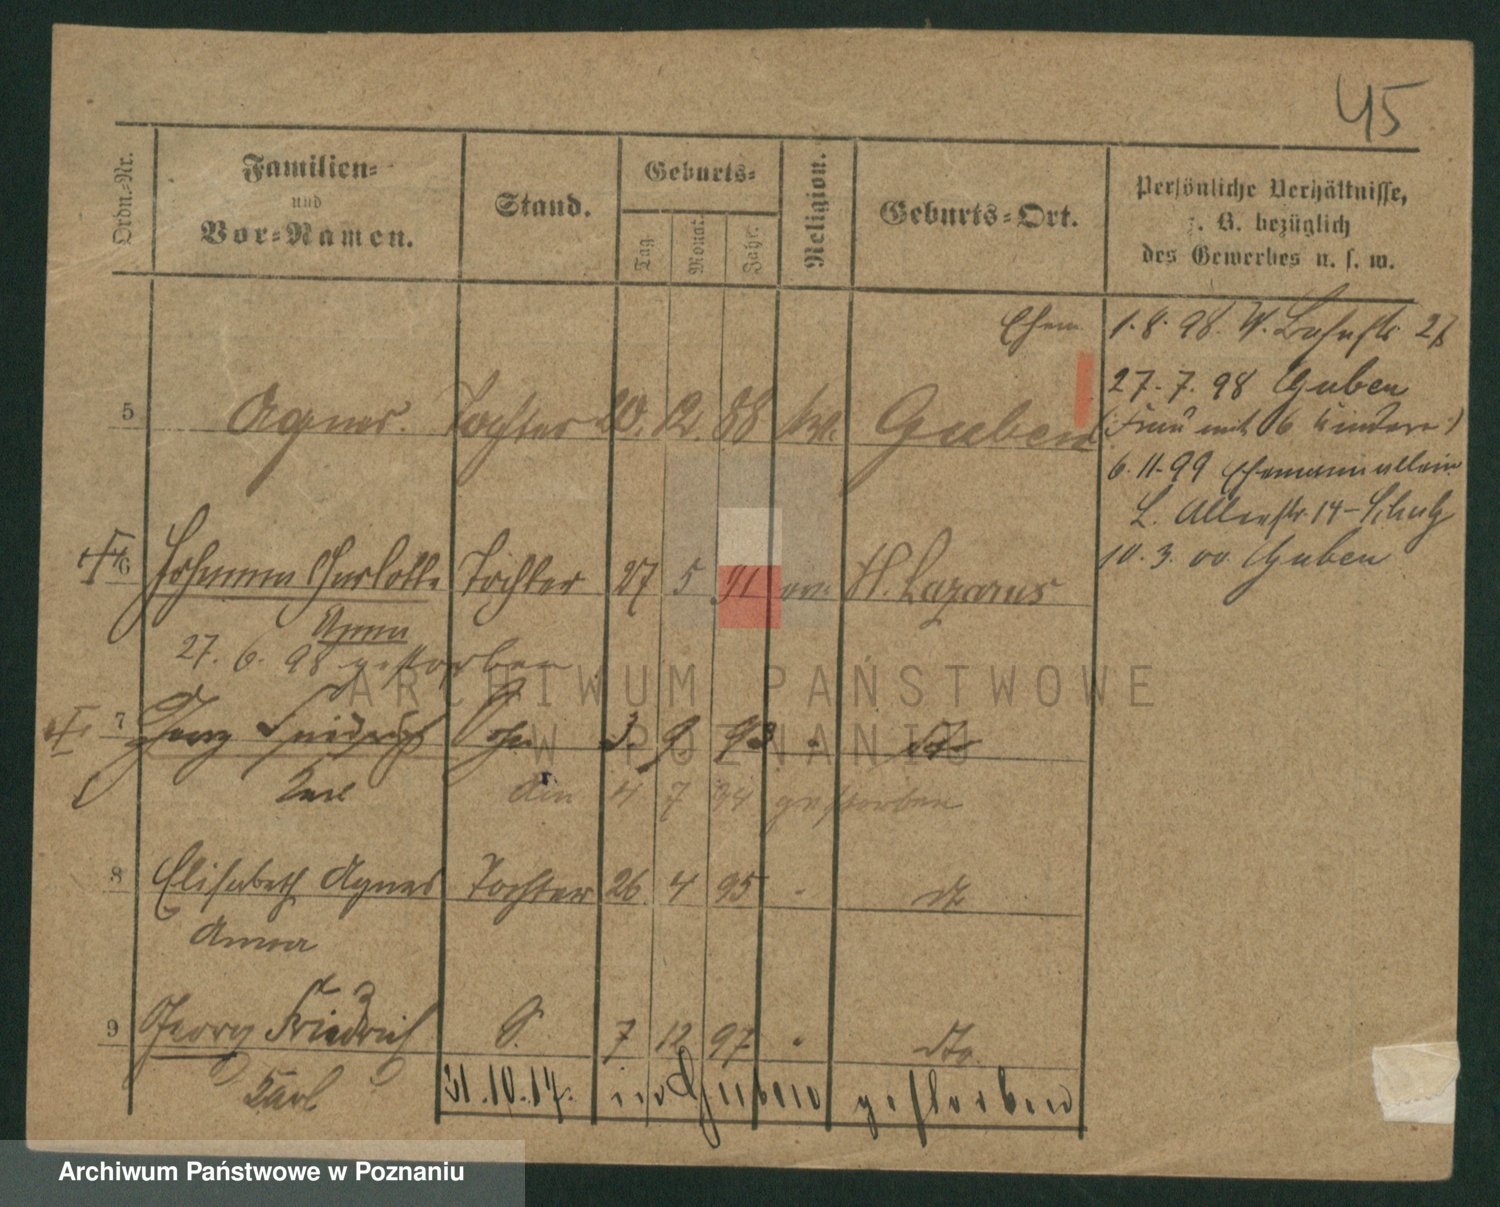 45
Ordn.-Nr.
Familien-
und
Vor-Namen.
Stand.
Geburts-
Tag
Monat.
Jahr.
Religion.
Geburts-Ort.
Persönliche Verhältnisse,
z. B. bezüglich
des Gewerbes u. s. w.
Ehem. 1.8.98. W. 27
27.7.98 Guben
5 Agnes. Tochter 20. 12. 88 Guben
(Frau mit 6 Kindern)
6.11.99 Ehemann allein
L. 14 - Schulz
10.3.00 Guben
6 Johanna Charlotte Tochter 27 5 91 ev. St. Lazarus
Anna
27. 6. 98 gestorben
7 Georg Friedrich Sohn 3. 9. 93 - dto
Karl am 4 7 94 gestorben
8 Elisabeth Agnes Tochter 26 4 95 - dto
Anna
9 Georg Friedrich S. 7 12 97 - dto.
Karl 21.10.14. in Guben gestorben
ARCHIWUM PAŃSTWOWE
W POZNANIU
Archiwum Państwowe w Poznaniu